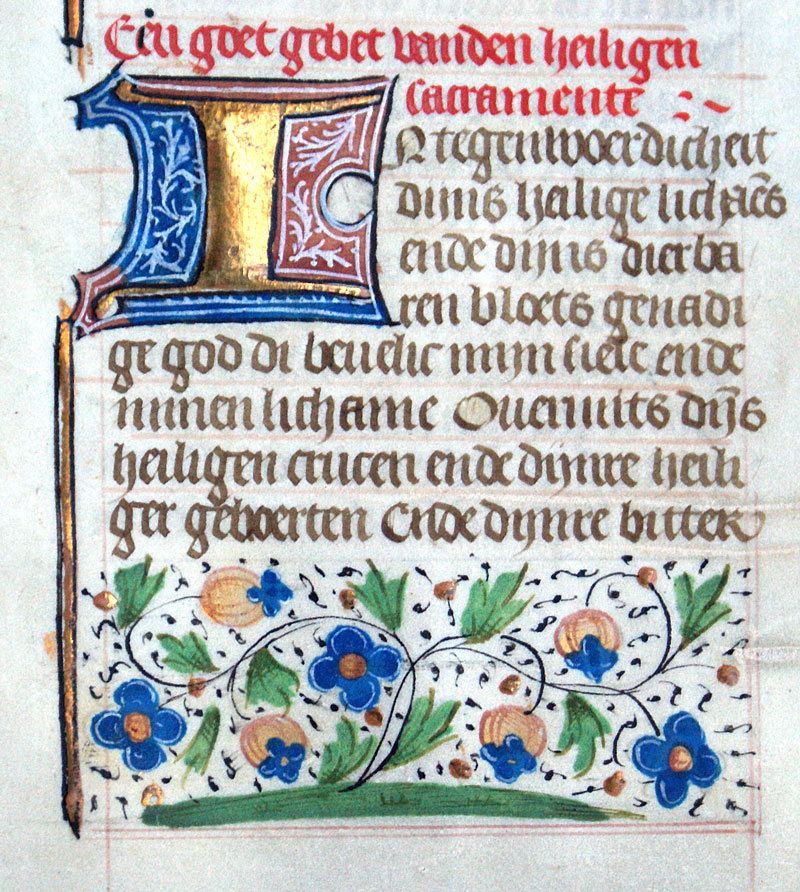 Een goet gebet vanden heiligen
sacramente
IN tegenwoerdicheit
dijns heilige lichaēs
ende dijns dierba
ren bloets genadi
ge god di beuelic mijn siele ende
minen lichame Ouermits dijs̄
heiligen crucen ende dijnre heili
ger geboerten Ende dijnre bitter